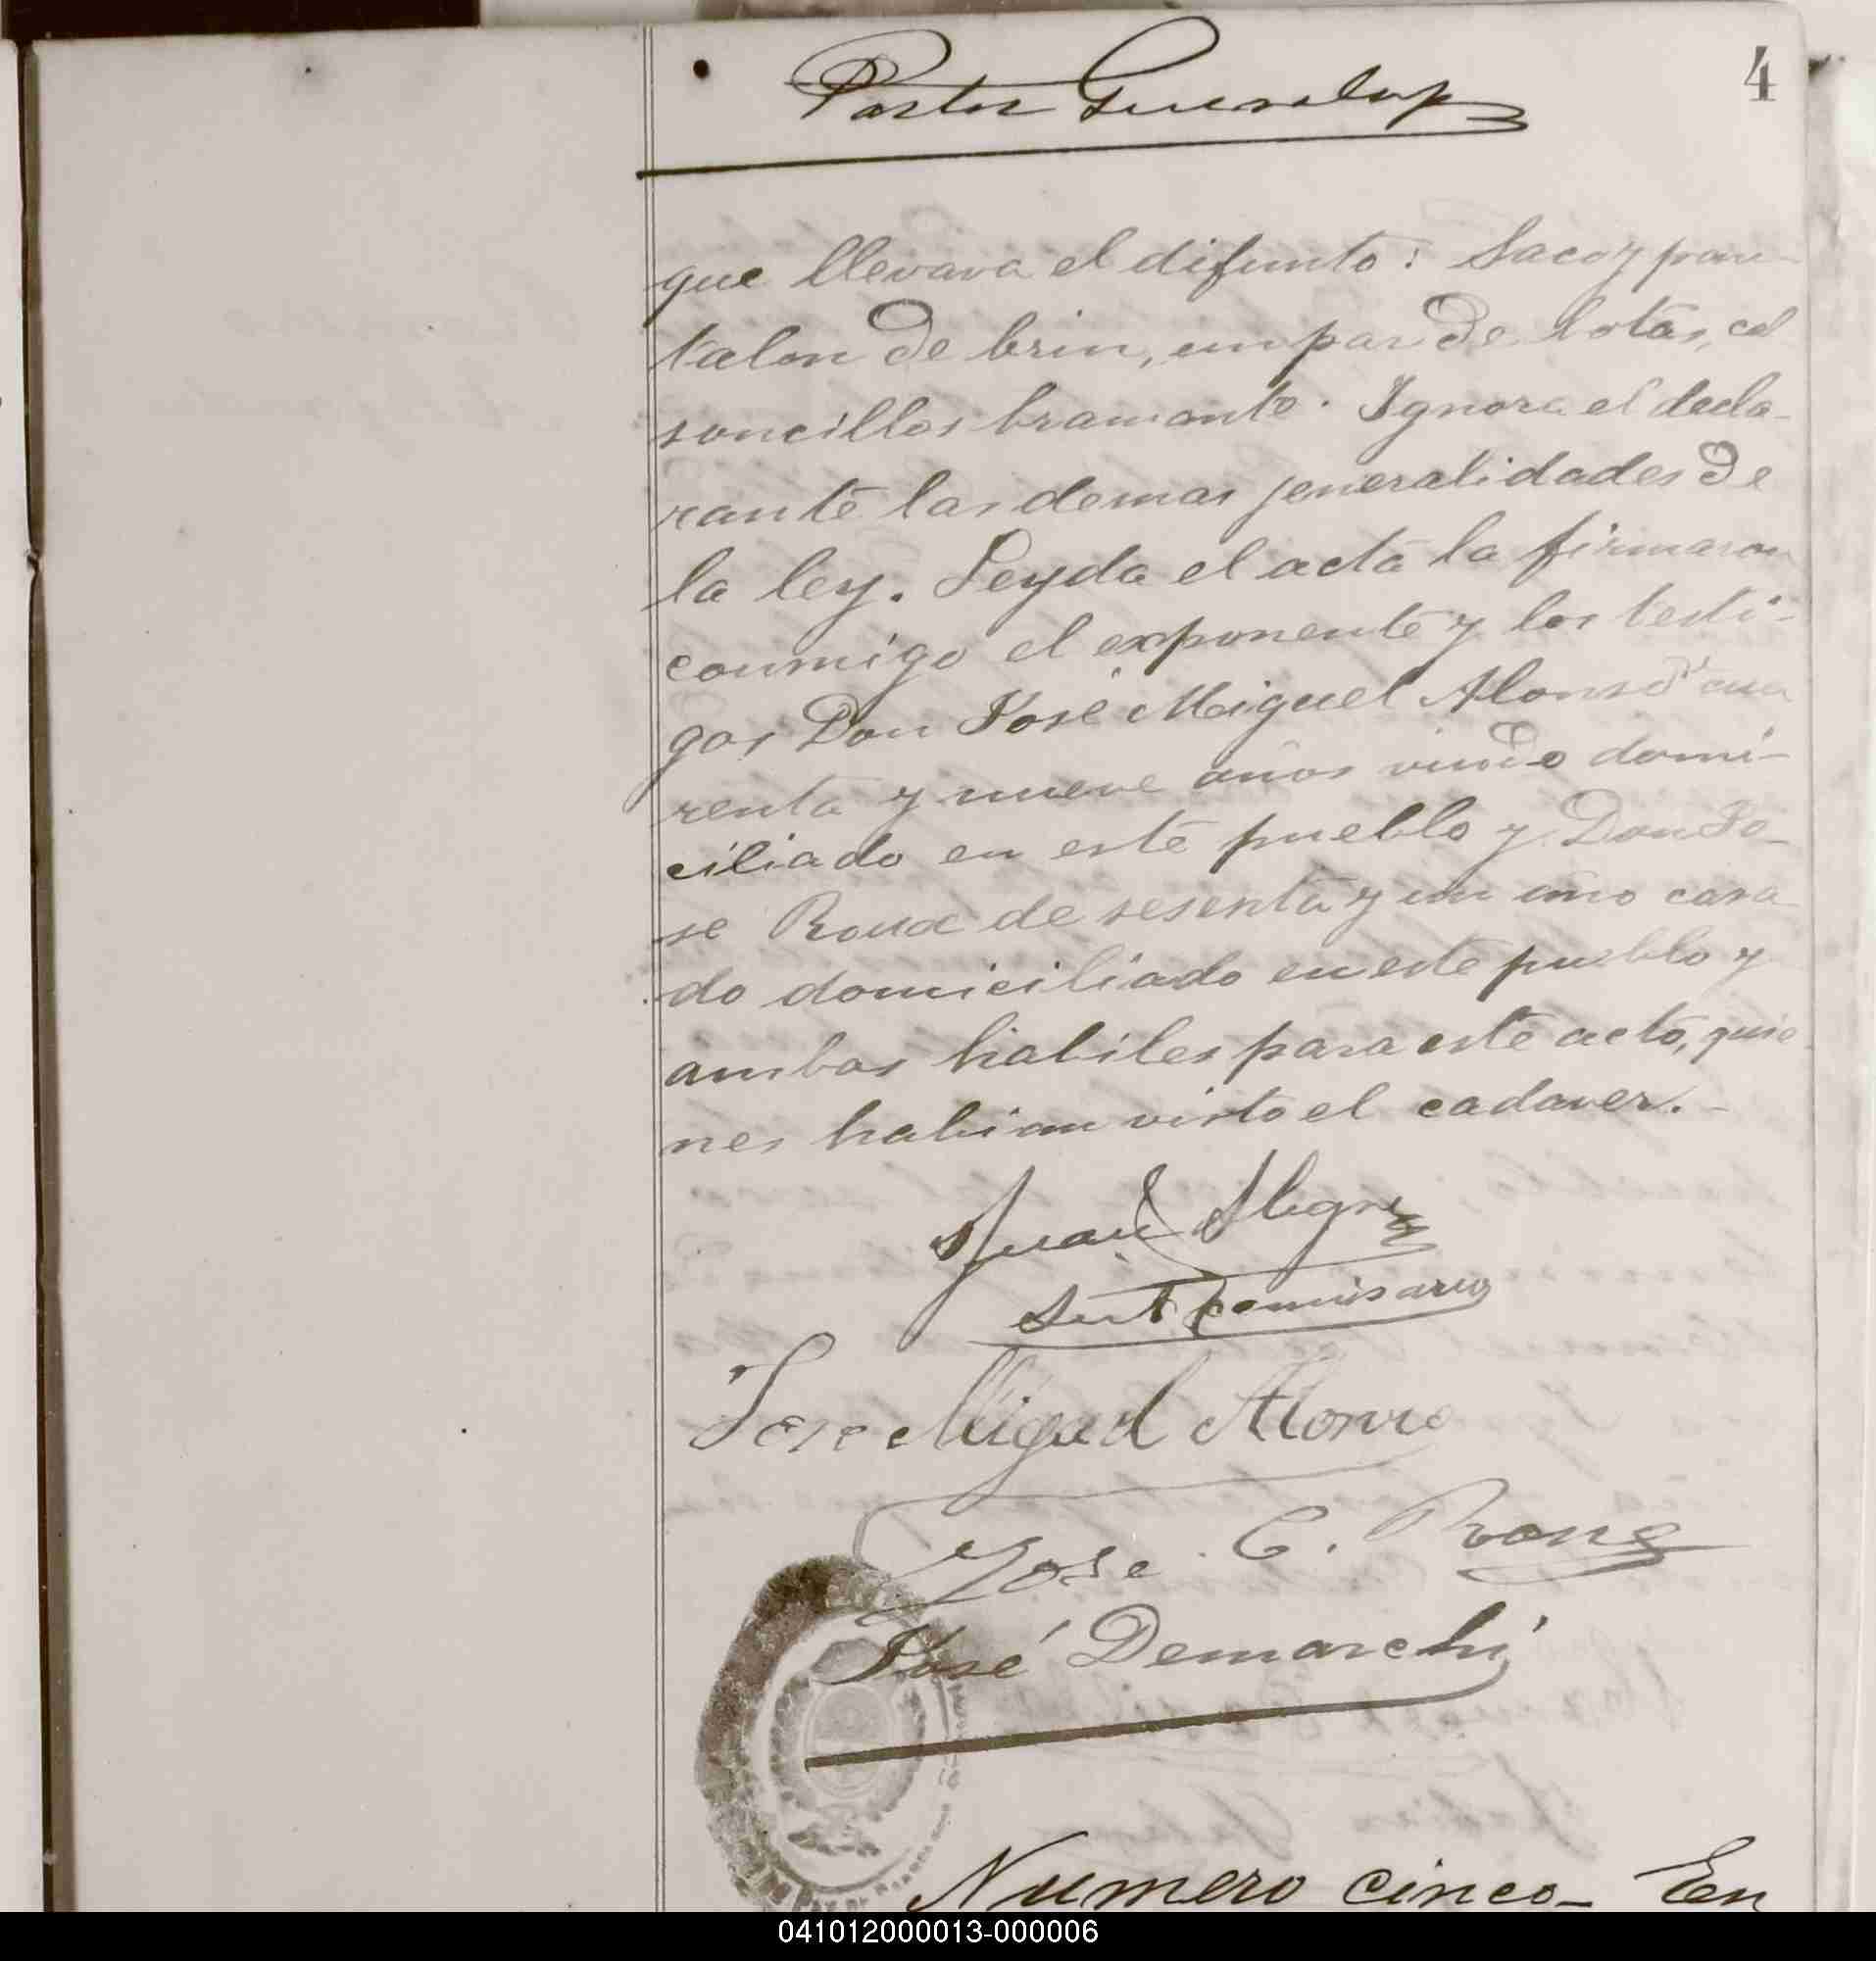 4
Pastor Guadalup
que llevava el difunto: Saco y pan-
talon de brin, un par de botas, cal
soncillos bramante. Ignora el decla-
rante las demas jeneralidades de
la ley. Leyda el acta la firmaron
conmigo el exponente y los testi-
gos Don José Miguel Alonso cua
renta y nueve años viudo domi-
ciliado en este pueblo y Don Jo-
se Roux de sesenta y un año casa
do domiciliado en este pueblo y
ambos habiles para este acto, quie
nes habian visto el cadaver.-
Juan Alegre
Sub comisario
Jose Miguel Alonso
Jose C. Roux
José Demarchi
Numero cinco- En
041012000013-000006